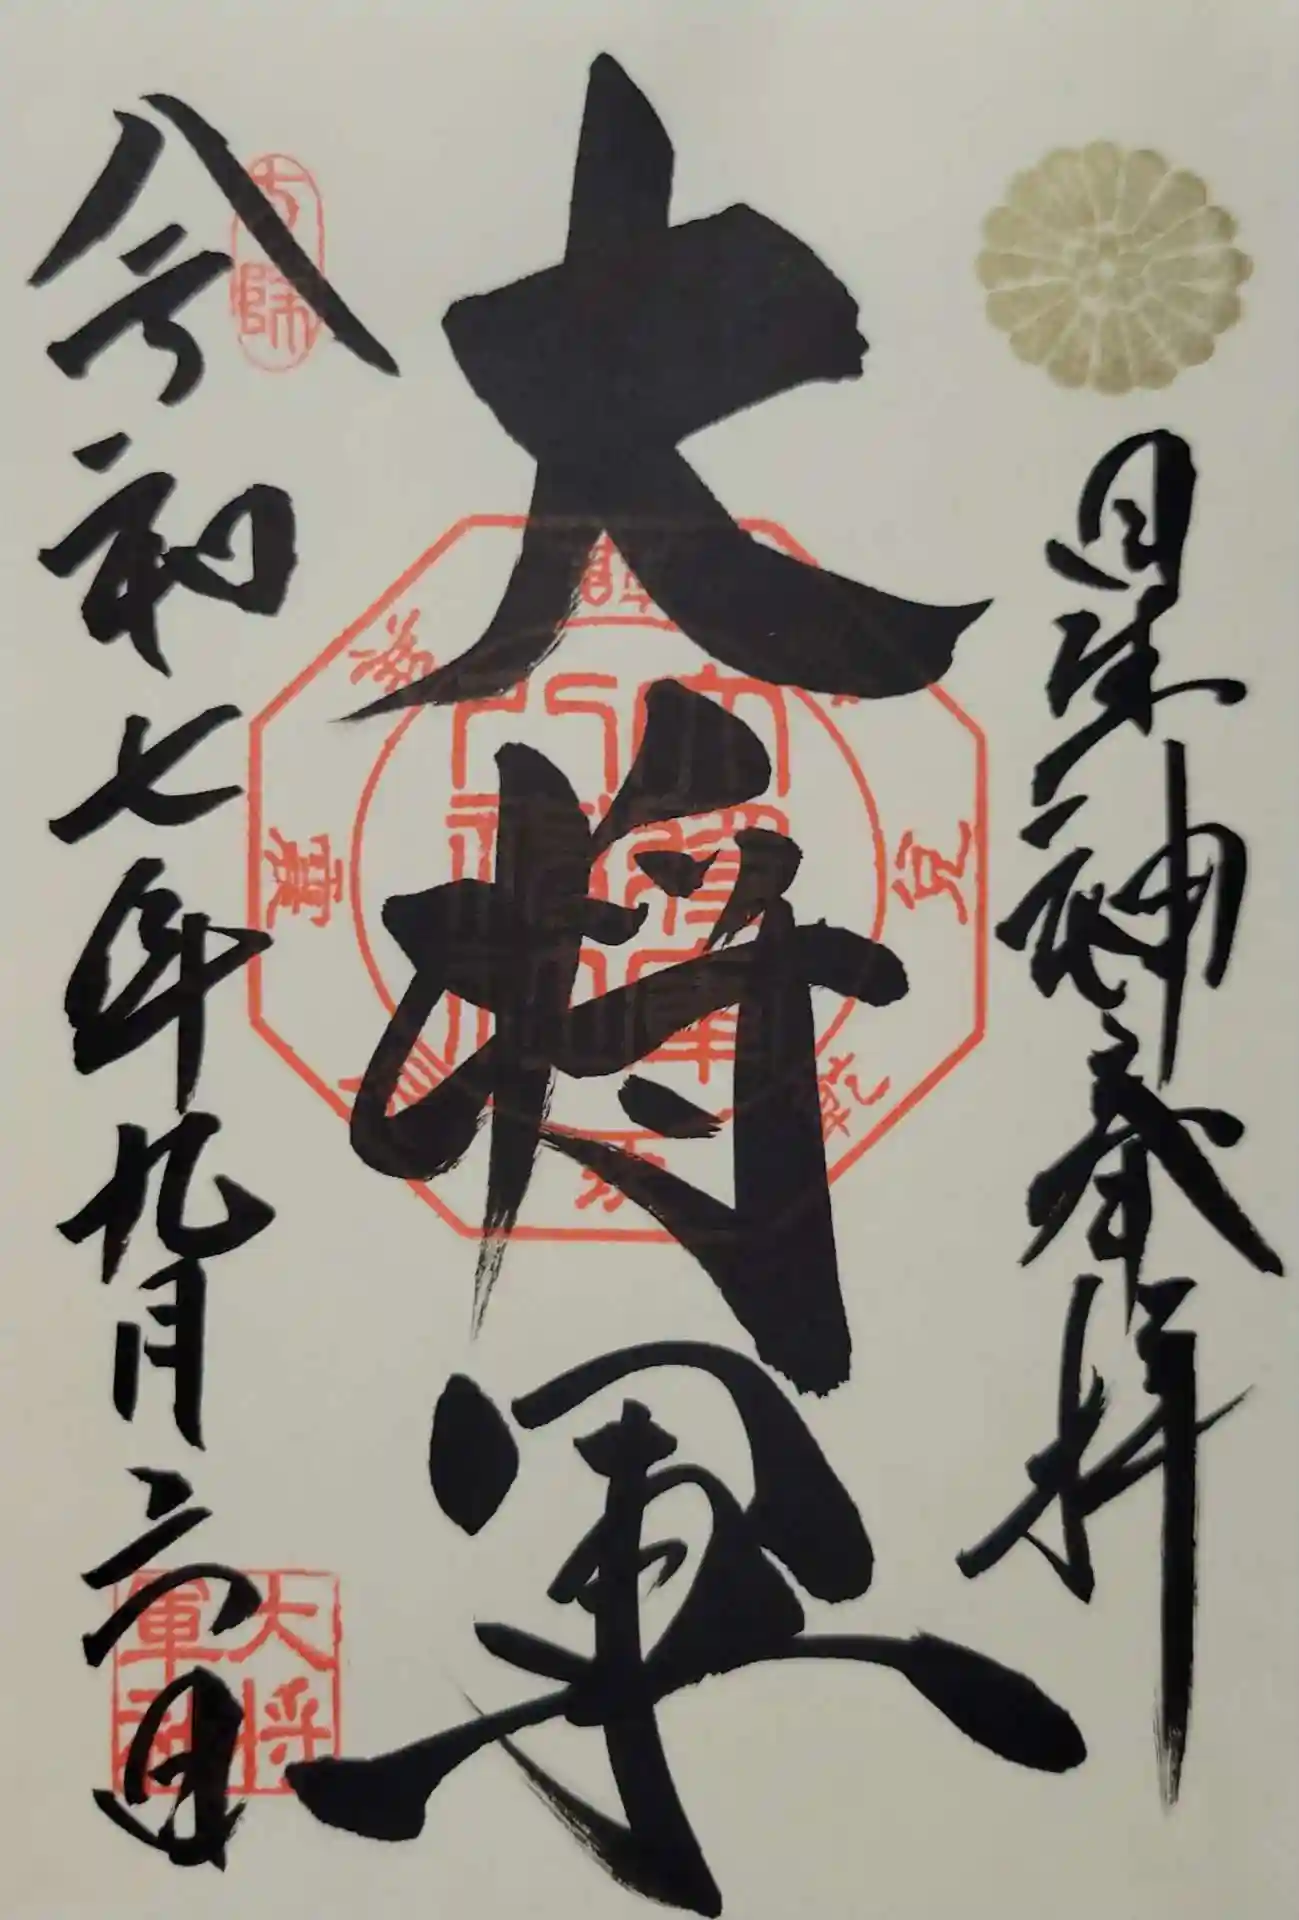 星神奉拝
大将軍
令和七年九月六日
兌
乾
震
大将軍社